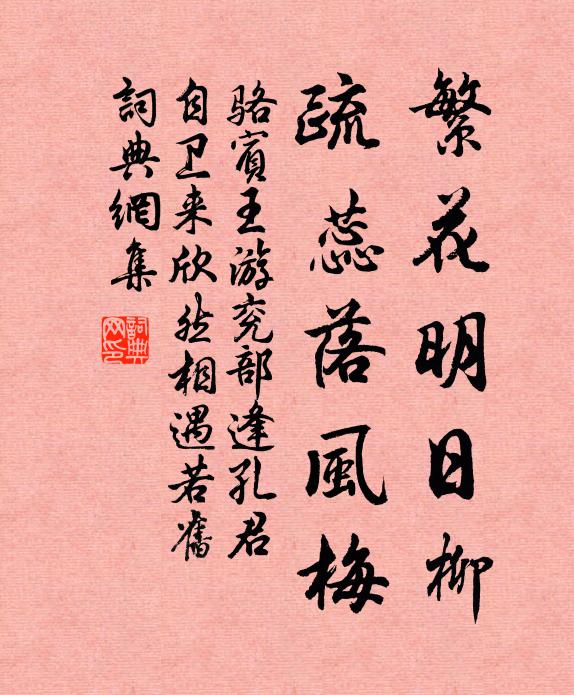 繁花明日柳
疏蕊落风梅
骆宾王游兖部逢孔君
自卫来欣然相遇若旧
詞典網集
詞典网印